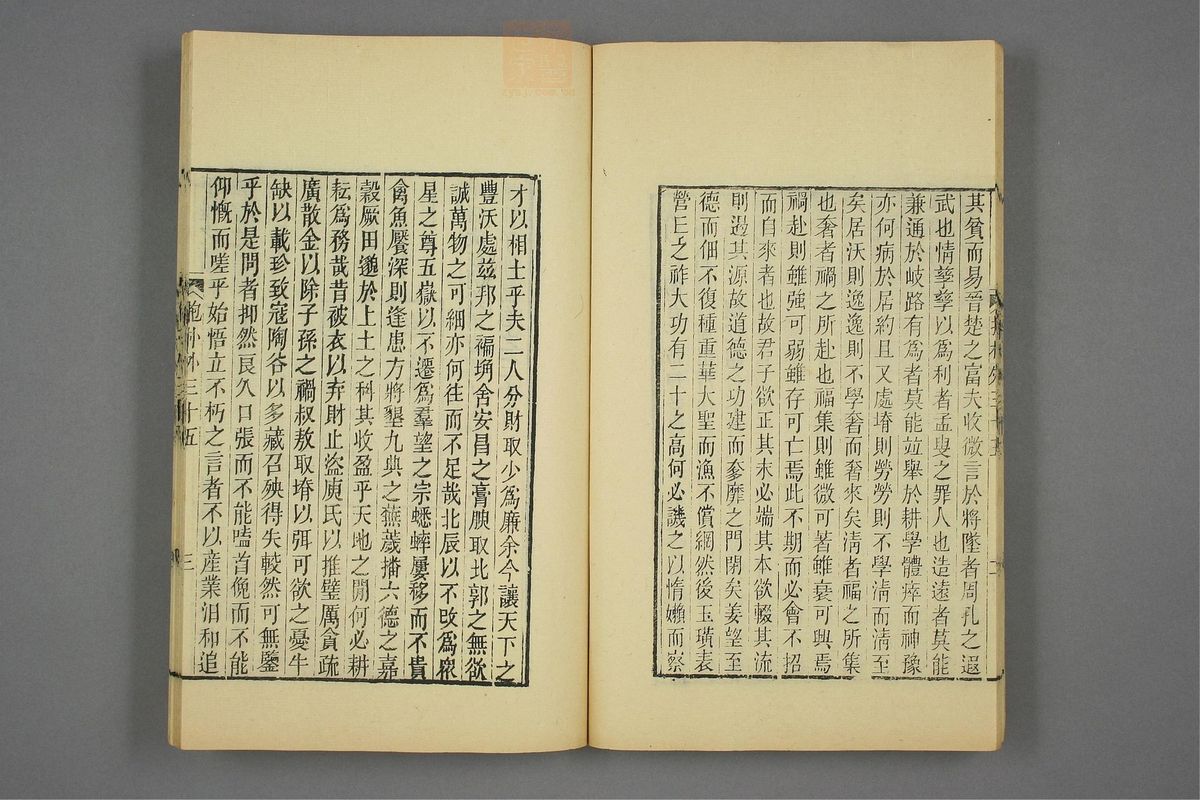 其貧而易晉楚之富夫收微言於將墜者周孔之遐
武也情孳孳以為利者孟叟之罪人也造遠者莫能
兼通於岐路有為者莫能竝舉於耕學體瘁而神豫
亦何病於居約且又處塉則勞勞則不學清而清至
矣居沃則逸逸則不學奢而奢來矣清者福之所集
也奢者禍之所赴也福集則雖微可著雖衰可興焉
禍赴則雖強可弱雖存可亡焉此不期而必會不招
而自來者也故君子欲正其末必端其本欲輟其流
則遏其源故道德之功建而奓靡之門閉矣姜望至
德而佃不復種重華大聖而漁不償網然後玉璜表
營丘之祚大功有二十之高何必譏之以惰嬾而察
才以相士乎夫二人分財取少為廉余今讓天下之
豐沃處茲邦之褊埆舍安昌之膏腴取北郭之無欲
誠萬物之可細亦何往而不足哉北辰以不改為衆
星之尊五嶽以不遷為羣望之宗蟋蟀屢移而不貴
禽魚饜深則逢患方將墾九典之蕪薉播六德之嘉
穀厥田邈於上土之科其收盈乎天地之閒何必耕
耘為務哉昔被衣以弃財止盜庾氏以推璧厲貪疏
廣散金以除子孫之禍叔敖取塉以弭可欲之憂牛
缺以載珍致寇陶谷以多藏召殃得失較然可無鑒
乎於是問者抑然良久口張而不能嗑首俛而不能
仰慨而嗟乎始悟立不朽之言者不以産業汨和追
抱朴外三十五
三